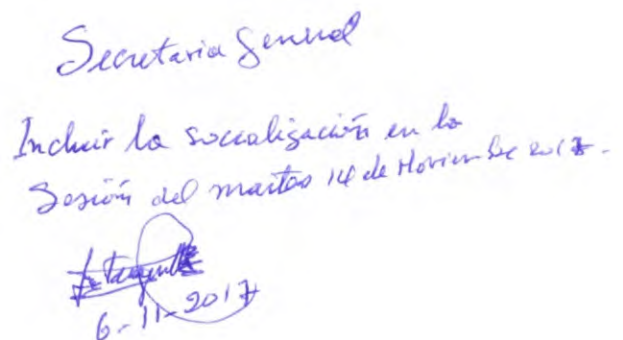 Secretaria General
Incluir la socialización en la
Sesión del martes 14 de Noviembre 2017.
6-11-2017